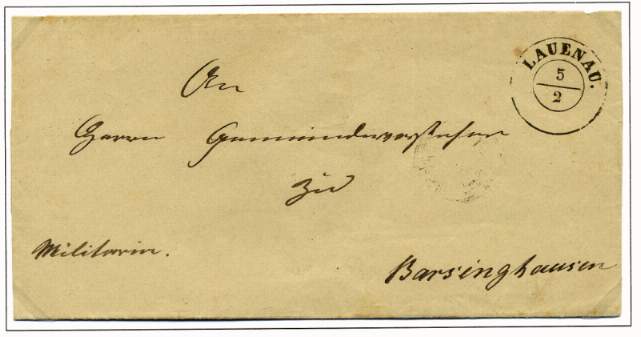 LAUENAU.
5
2
An
Herrn Gemeindevorsteher
zu
Militaria.
Barsinghausen